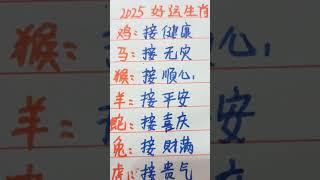 2025好运生肖
鸡：接健康
马：接无灾
猴：接顺心，
羊：接平安
蛇：接喜庆
兔：接财满
虎：接贵气